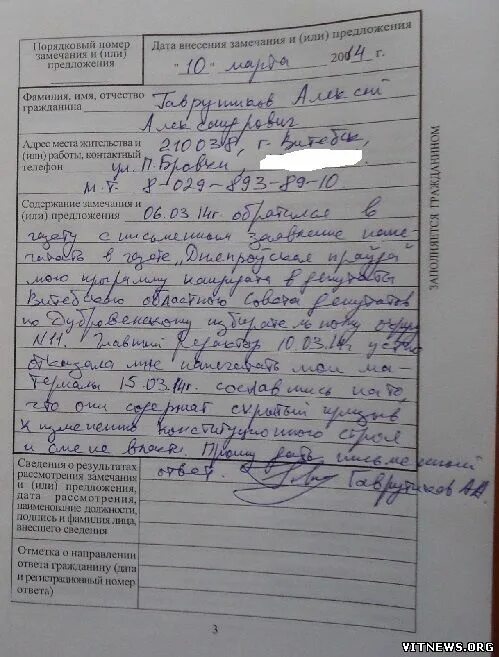 Порядковый номер
замечания и (или)
предложения
Дата внесения замечания и (или) предложения
"10" марта 2014 г.
Фамилия, имя, отчество
гражданина
Гаврутиков Алексей
Александрович
Адрес места жительства и
(или) работы, контактный
телефон
210038, г. Витебск,
ул. П. Бровки
м.т. 8-029-893-89-10
Содержание замечания и
(или) предложения
06.03.14г. обратился в
газету с письменным заявление напе-
чатать в газете "Днепроўская праўда"
мою программу кандидата в депутаты
Витебского областного Совета депутатов
по Дубровенскому избирательному округу
N11. Главный редактор 10.03.14г. устно
отказала мне напечатать мои ма-
териалы 15.03.14г. сославшись на то,
что они содержат скрытый призыв
к изменению конституционного строя
и смене власти. Прошу дать письменный
ответ. Гаврутиков АА
Сведения о результатах
рассмотрения замечания
и (или) предложения,
дата рассмотрения,
наименование должности,
подпись и фамилия лица,
внесшего сведения
Отметка о направлении
ответа гражданину (дата
и регистрационный номер
ответа)
3
ЗАПОЛНЯЕТСЯ ГРАЖДАНИНОМ
VITNEWS.ORG